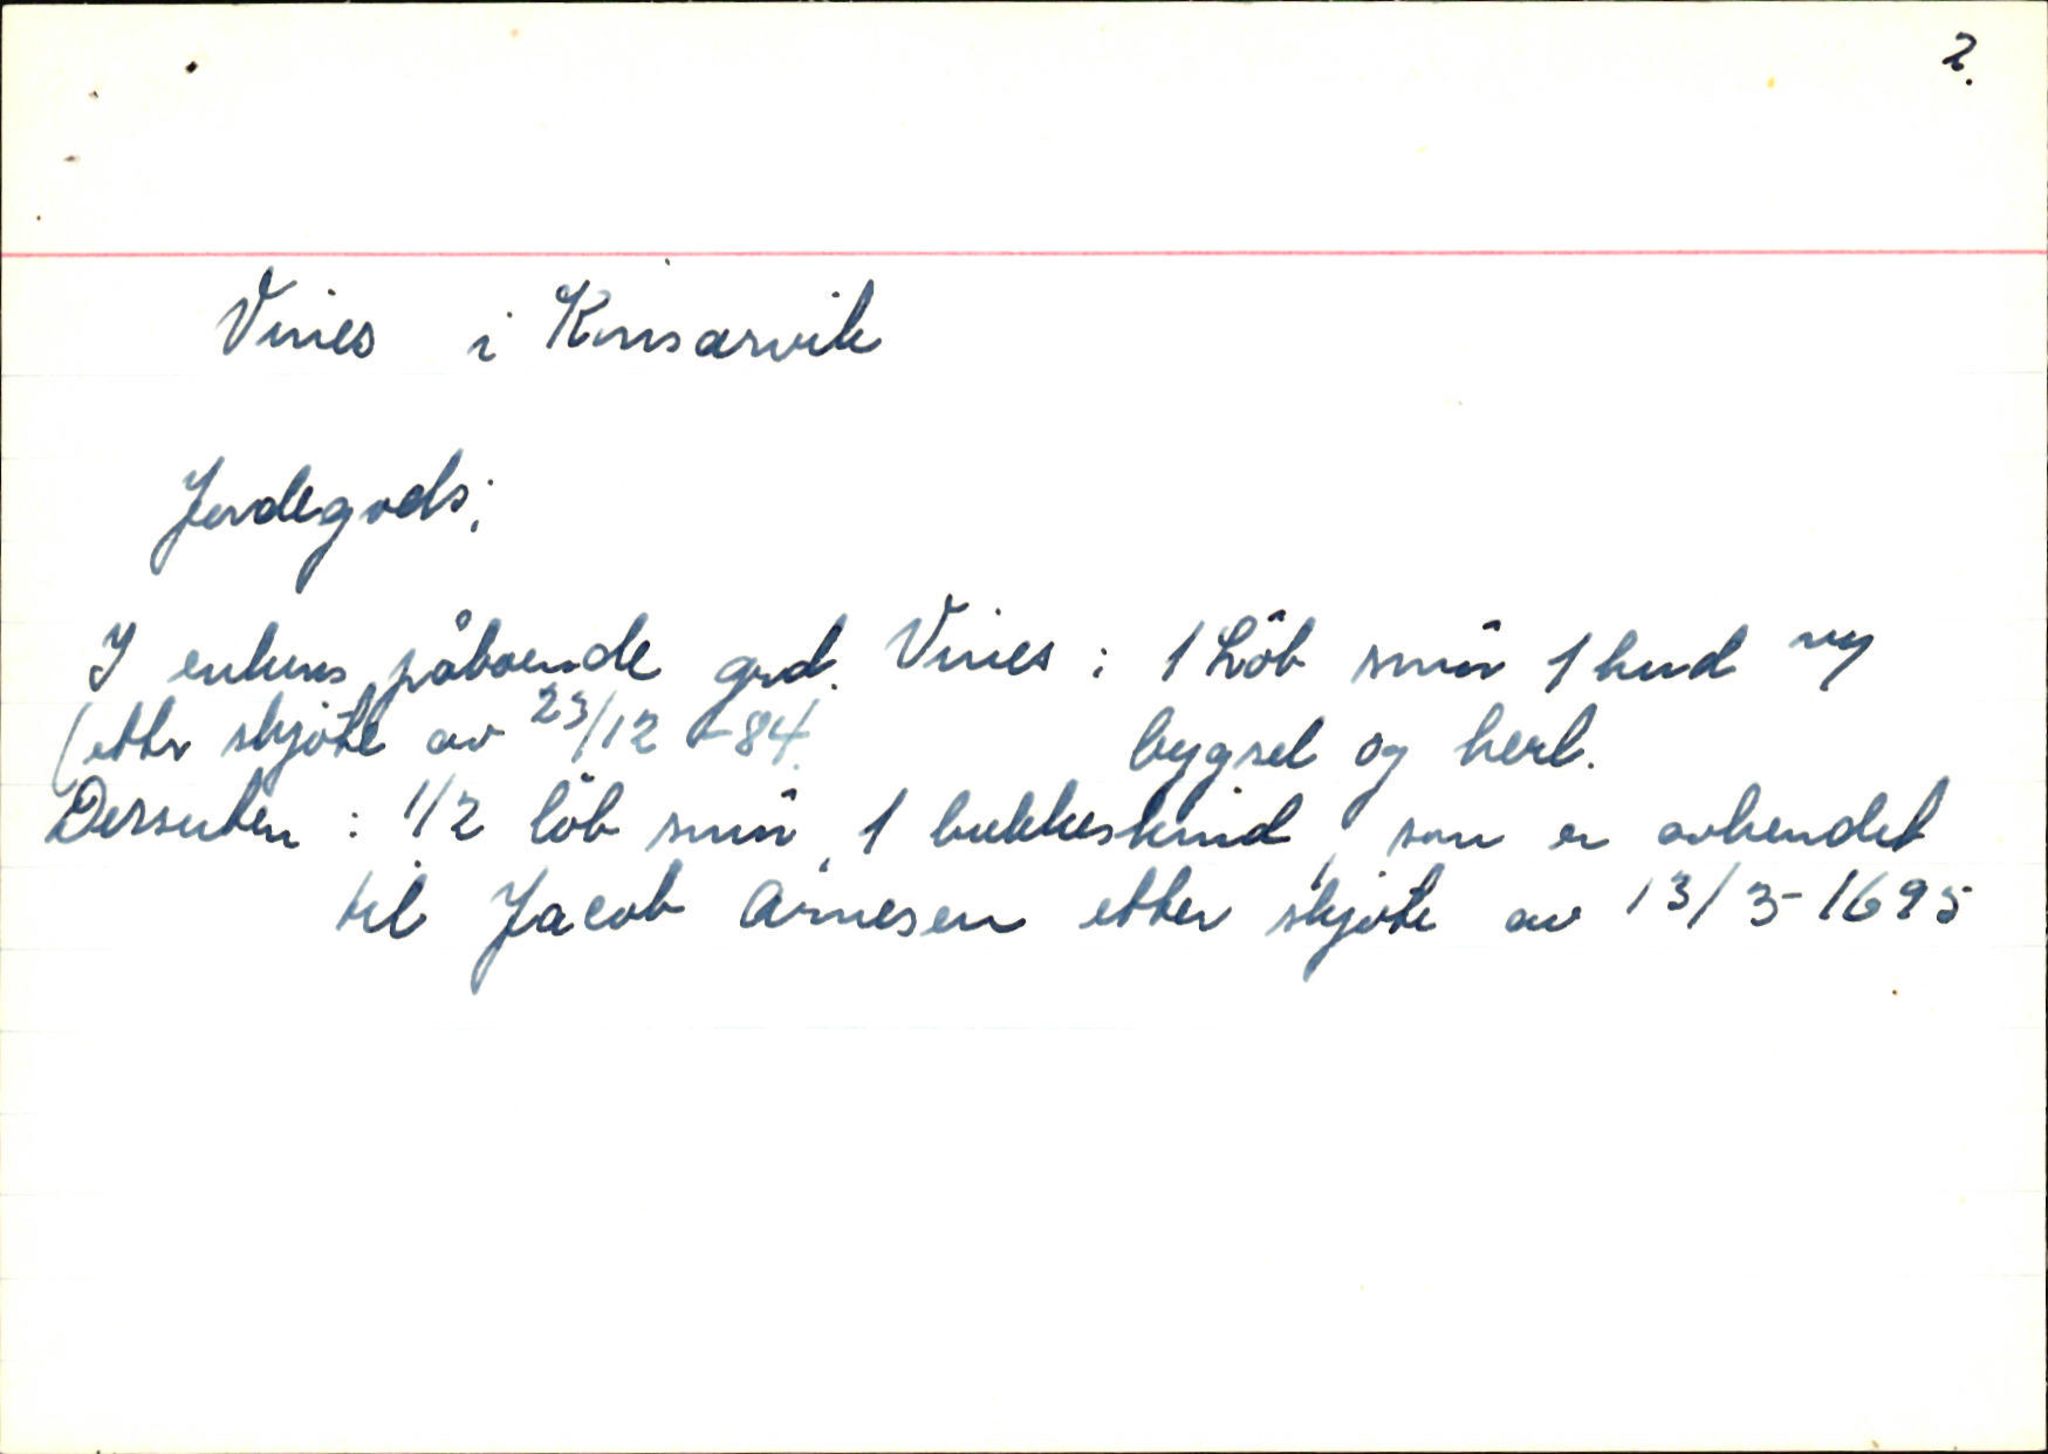 2.
Vines i Kinsarvik
Jordegods;
I enkens påboende grd. Vines: 1 Löb smör 1 hud
(etter skjöte av 23/12 - 84. bygsel og herl.
Dersuten : 1/2 löb smör, 1 bukkeskind, som er avhendet
til Jacob Arnesen etter skjöte av 13/3-1695